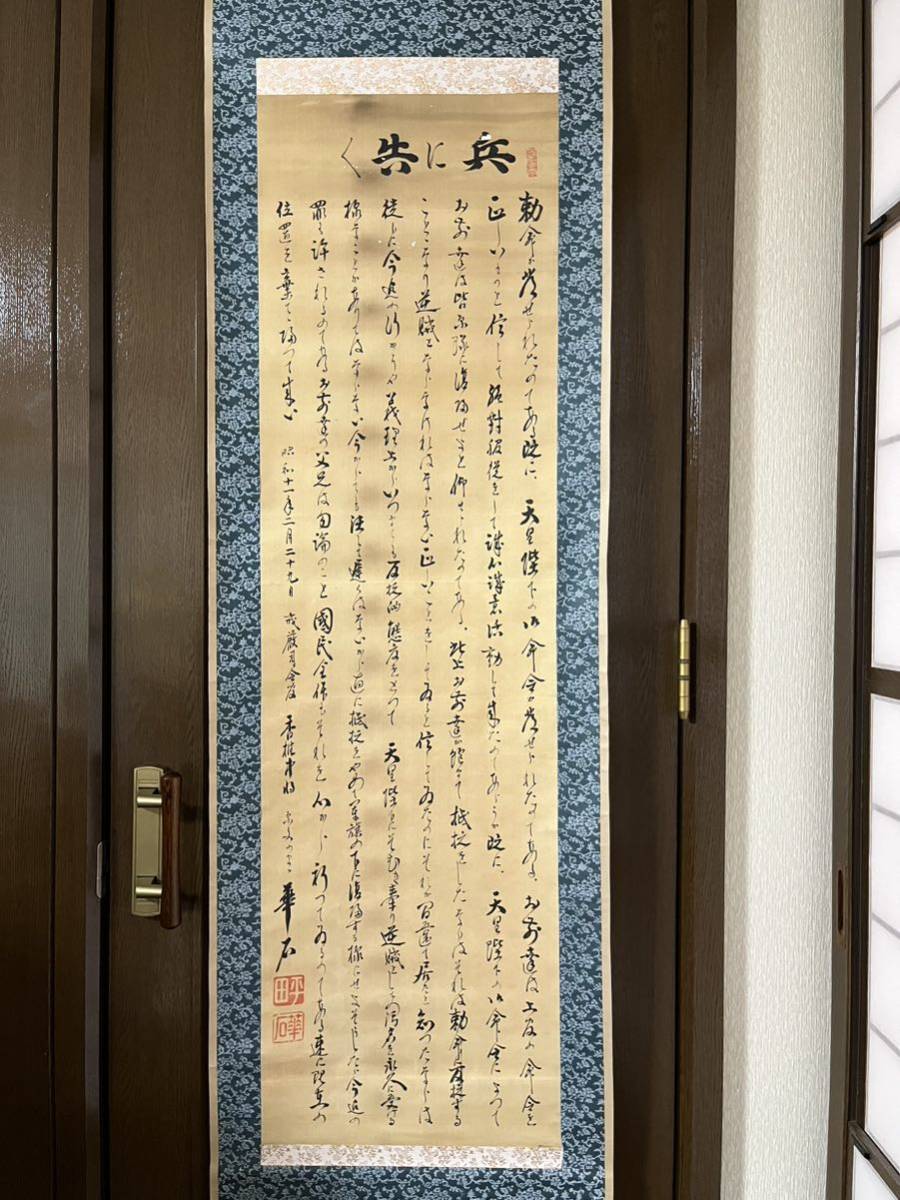 兵に告く
勅命が発せられたのである既に、天皇陛下の御命令が発せられたのである、お前達は上官の命令を
正しいものと信して絶對服從をして誠心誠意活動して来たのであろうが既に、天皇陛下の御命令によつて
お前達は皆原隊に復帰せよと仰せられたのである、此上お前達が飽くまで抵抗をしたならばそれは勅命に反抗する
こととなり逆賊とならなければならない正しいことをしてゐると信してゐたのにそれが間違て居たと知つたならは
徒らに今迄の行かゝりや義理上からいつまでも反抗的態度をとつて 天皇陛下にそむき奉り逆賊としての汚名を永久に受ける
様なことがあつてはならない今からでも決して遅くはないから直に抵抗をやめて軍旗の下に復帰する様にせよそうしたら今迄の
罪も許されるのである、お前達の父兄は勿論のこと國民全体もそれを心から祈つてゐるのである速に現在の
位置を棄てゝ帰つて来い 昭和十一年二月二十九日 戒厳司令官 香椎中将 華石
平田
華石